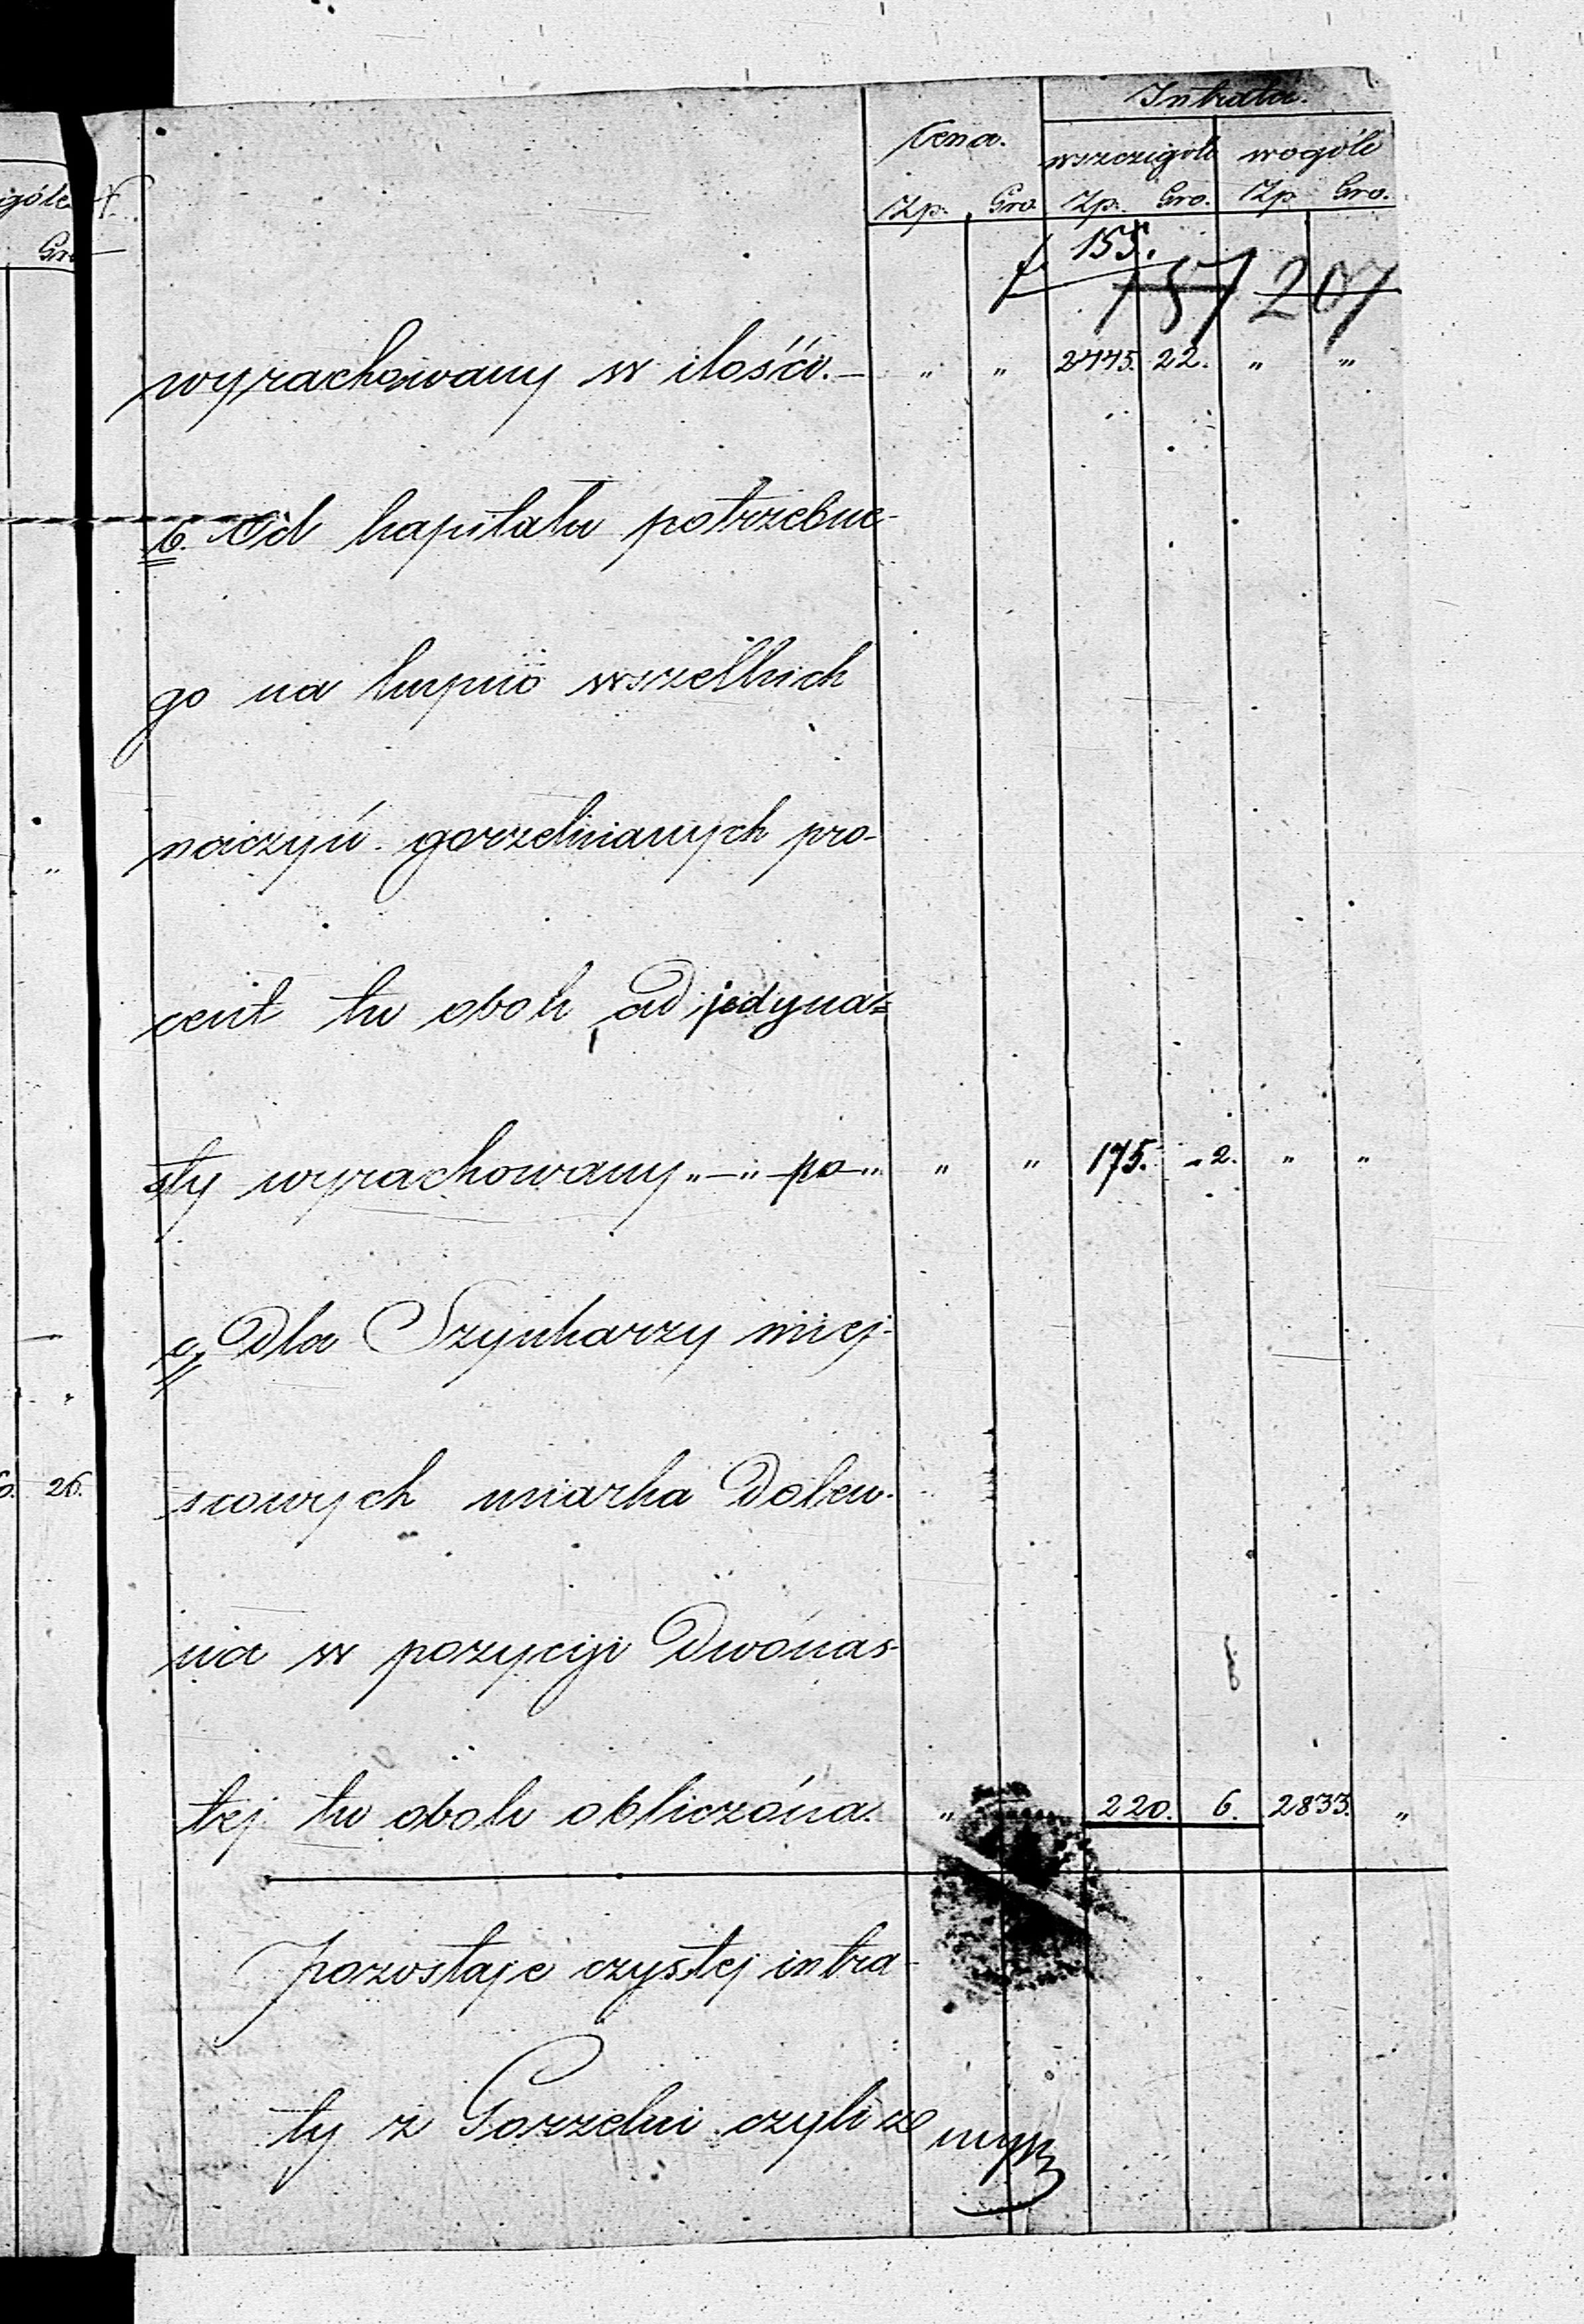 Intrata.
Cena. wszczególe wogóle
Zp. Gro. Zp. Gro. Zp. Gro.
f. 155.
157 207
wyrachowany w ilości.— „ „ 2445. 22. „ „
b. Od kapitału potrzebne-
go na kupno wszelkich
naczyń gorzelnianych pro-
cent tu obok ad jedyna=
sty wyrachowany „—„ po „ „ „ 175. „ 2. „ „
c, Dla Szynkarzy miej-
scowych miarka Dolew-
na w pozycyi Dwónas-
tej tu obok obliczóna. „ 220. 6. 2833. „
Pozostaje czystej intra-
ty z Gorzelni czyli ze
góle
Gro
„
26.